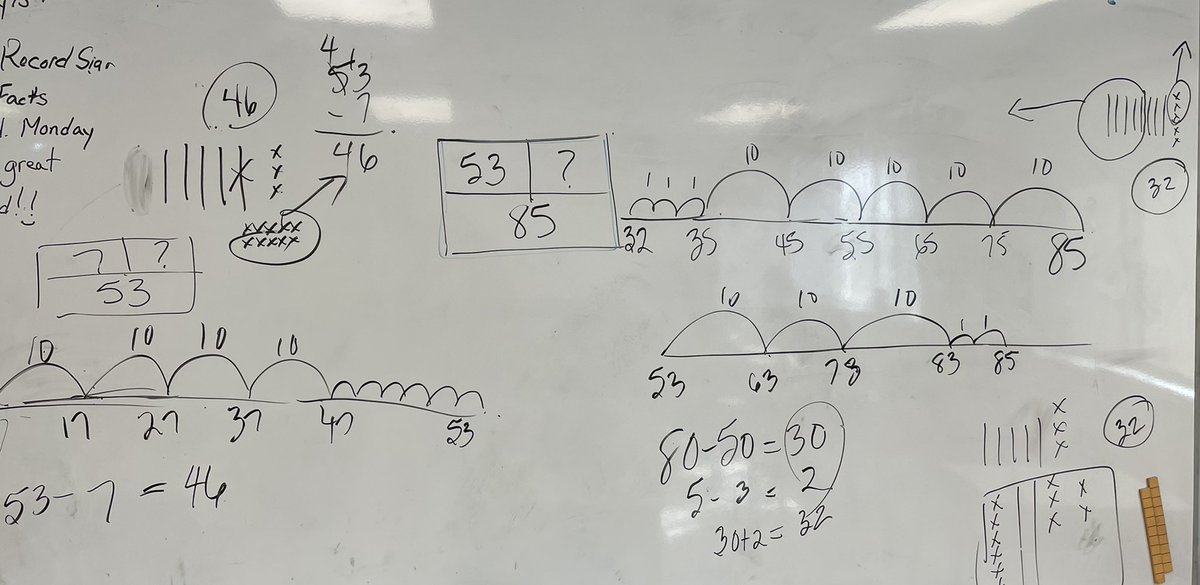 Record Sign
Facts
1. Monday
great
d!!
46
4 1
53
- 7
46
7 ?
53
10 10 10 10
7 17 27 37 47 53
53 - 7 = 46
53 ?
85
1 1 1 10 10 10 10 10
32 35 45 55 65 75 85
32
10 10 10 1 1
53 63 73 83 85
80-50=30
5-3=2
30+2=32
32